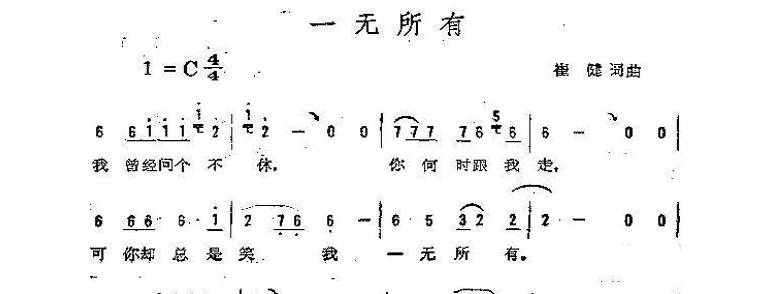 一无所有
1=C 4/4
崔健词曲
6 6 i i i i 2 | i 2 – 0 0 | 7 7 7 7 6 5 6 | 6 – 0 0 |
我 曾经问个 不 休, 你 何 时跟 我 走,
6 6 6 6 i | 2 2 7 6 6 – | 6 5 3 2 2 | 2 – 0 0 |
可 你却 总 是 笑 我 一 无 所 有。